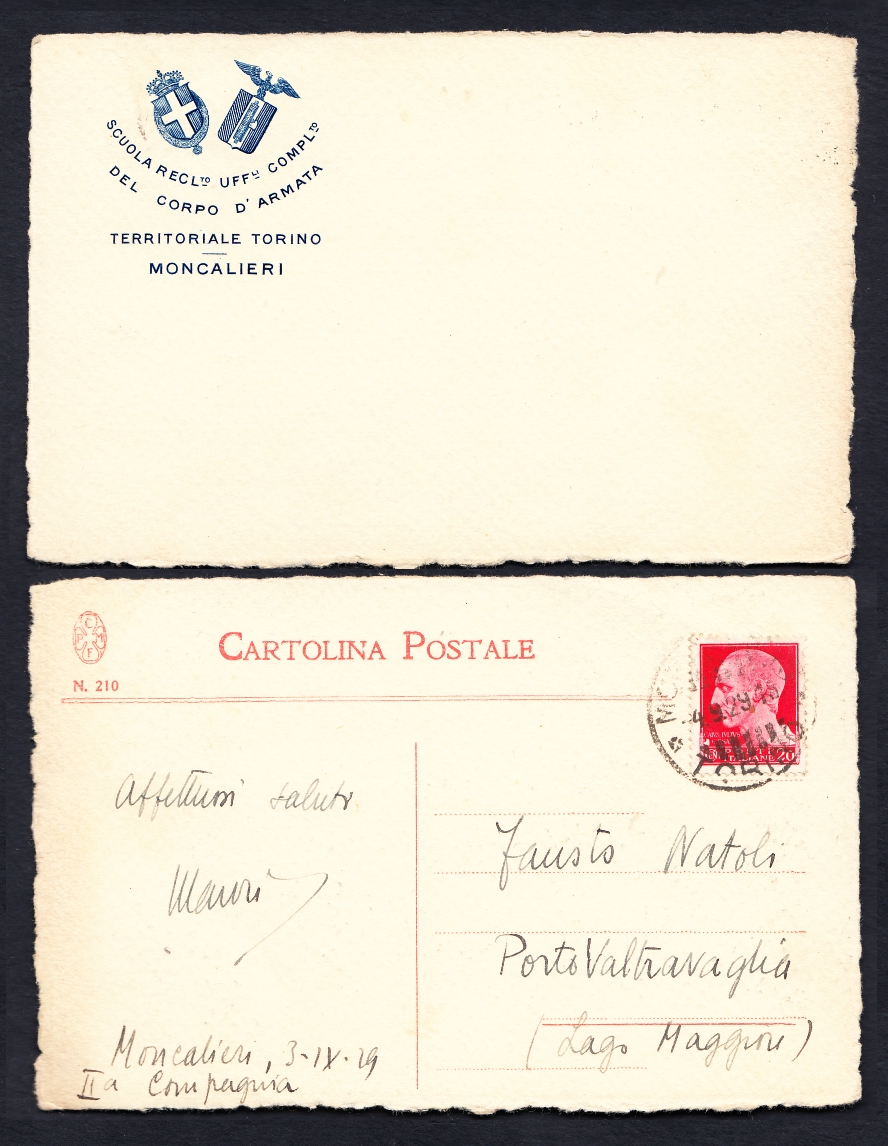 SCUOLA RECL.TO UFF.LI COMPL.TO
DEL CORPO D'ARMATA
TERRITORIALE TORINO
MONCALIERI
C
P M
F
N. 210
CARTOLINA POSTALE
4.9.29
20
Affettuosi saluti
Moncalieri, 3-IX-29
IIa Compagnia
Fausto Natoli
Porto Valtravaglia
(Lago Maggiore)